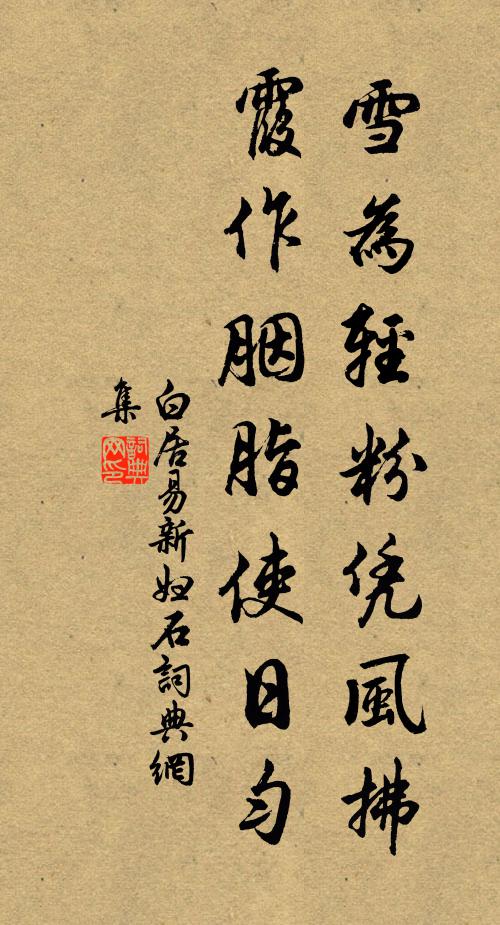 雪為輕粉凭風拂
霞作胭脂使日勻
白居易新婦石詞典網
集
詞典网印